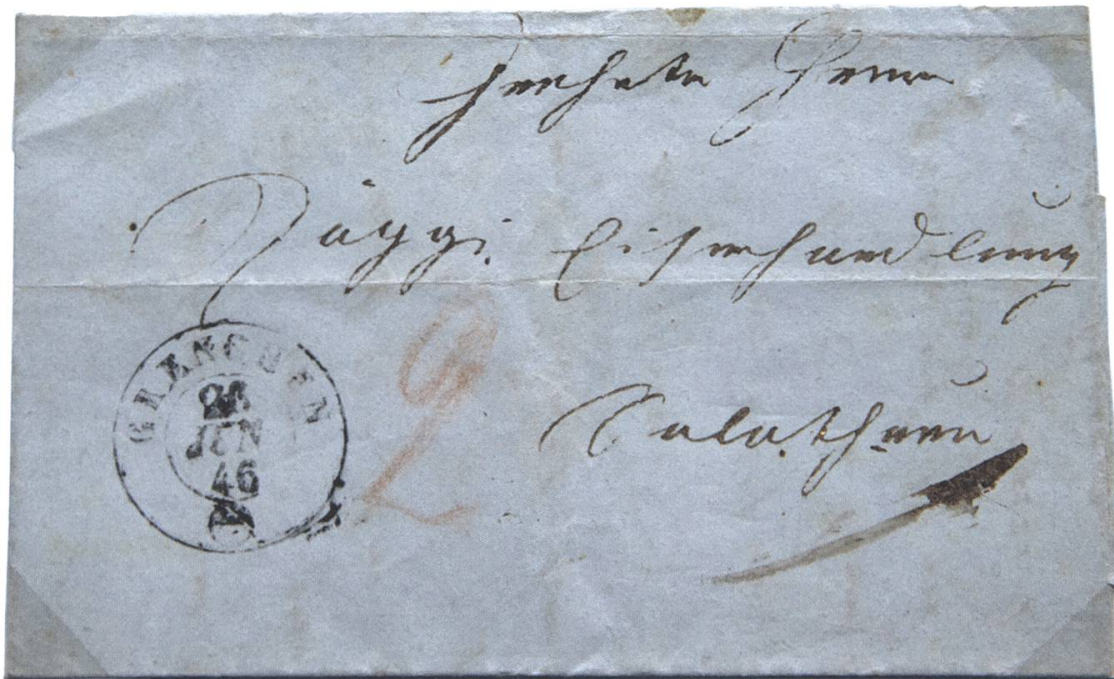 Herrn
Jäggi Eisenhandlung
Solothurn
GRENCHEN
JUN
46
2